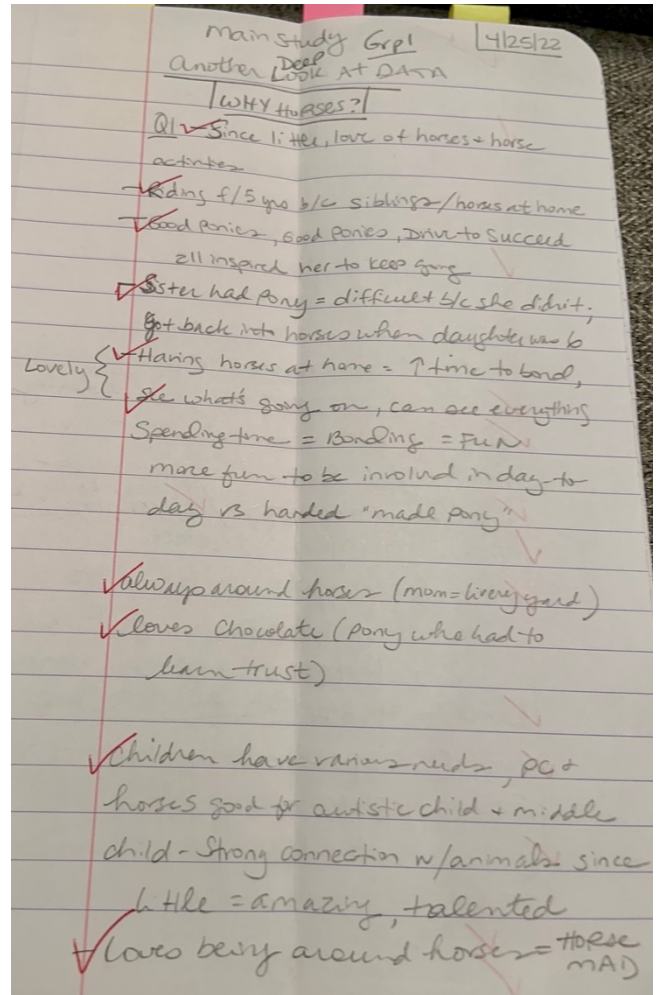 main study Grp1
4/25/22
another Deep Look At DATA
WHY HORSES?
Q1 - Since little, love of horses + horse
activities
- Riding f/5 yrs b/c siblings/horses at home
- Good ponies, Good ponies, Drive to succeed
all inspired her to keep going
- Sister had pony = difficult b/c she didn't;
got back into horses when daughter was 6
Lovely { - Having horses at home = ↑ time to bond,
see what's going on, can see everything
Spending time = Bonding = FUN
more fun to be involvd in day-to
day vs handed "made pony"
always around horses (mom = livery yard)
loves Chocolate (pony who had to
learn trust)
Children have various needs, PC +
horses good for autistic child + middle
child - Strong connection w/animals since
little = amazing, talented
- Loves being around horses = HORSE
MAD